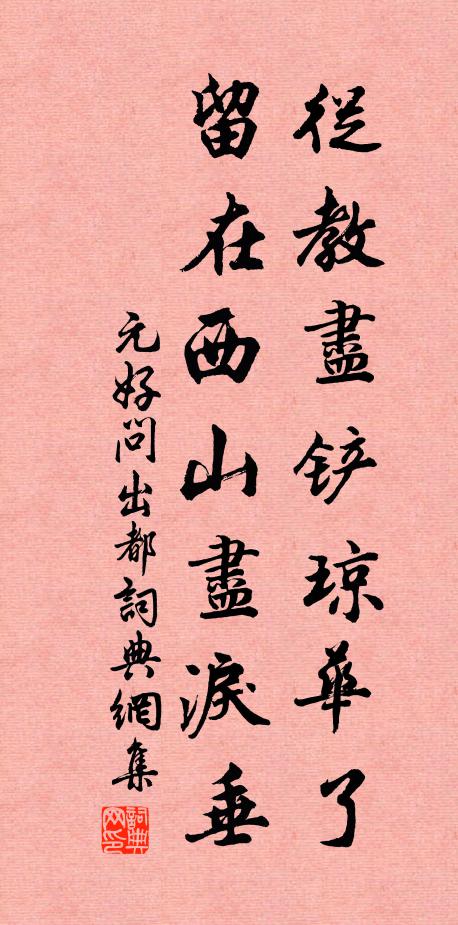 從教盡铲琼華了
留在西山盡淚垂
元好问出都詞典網集
詞典网印